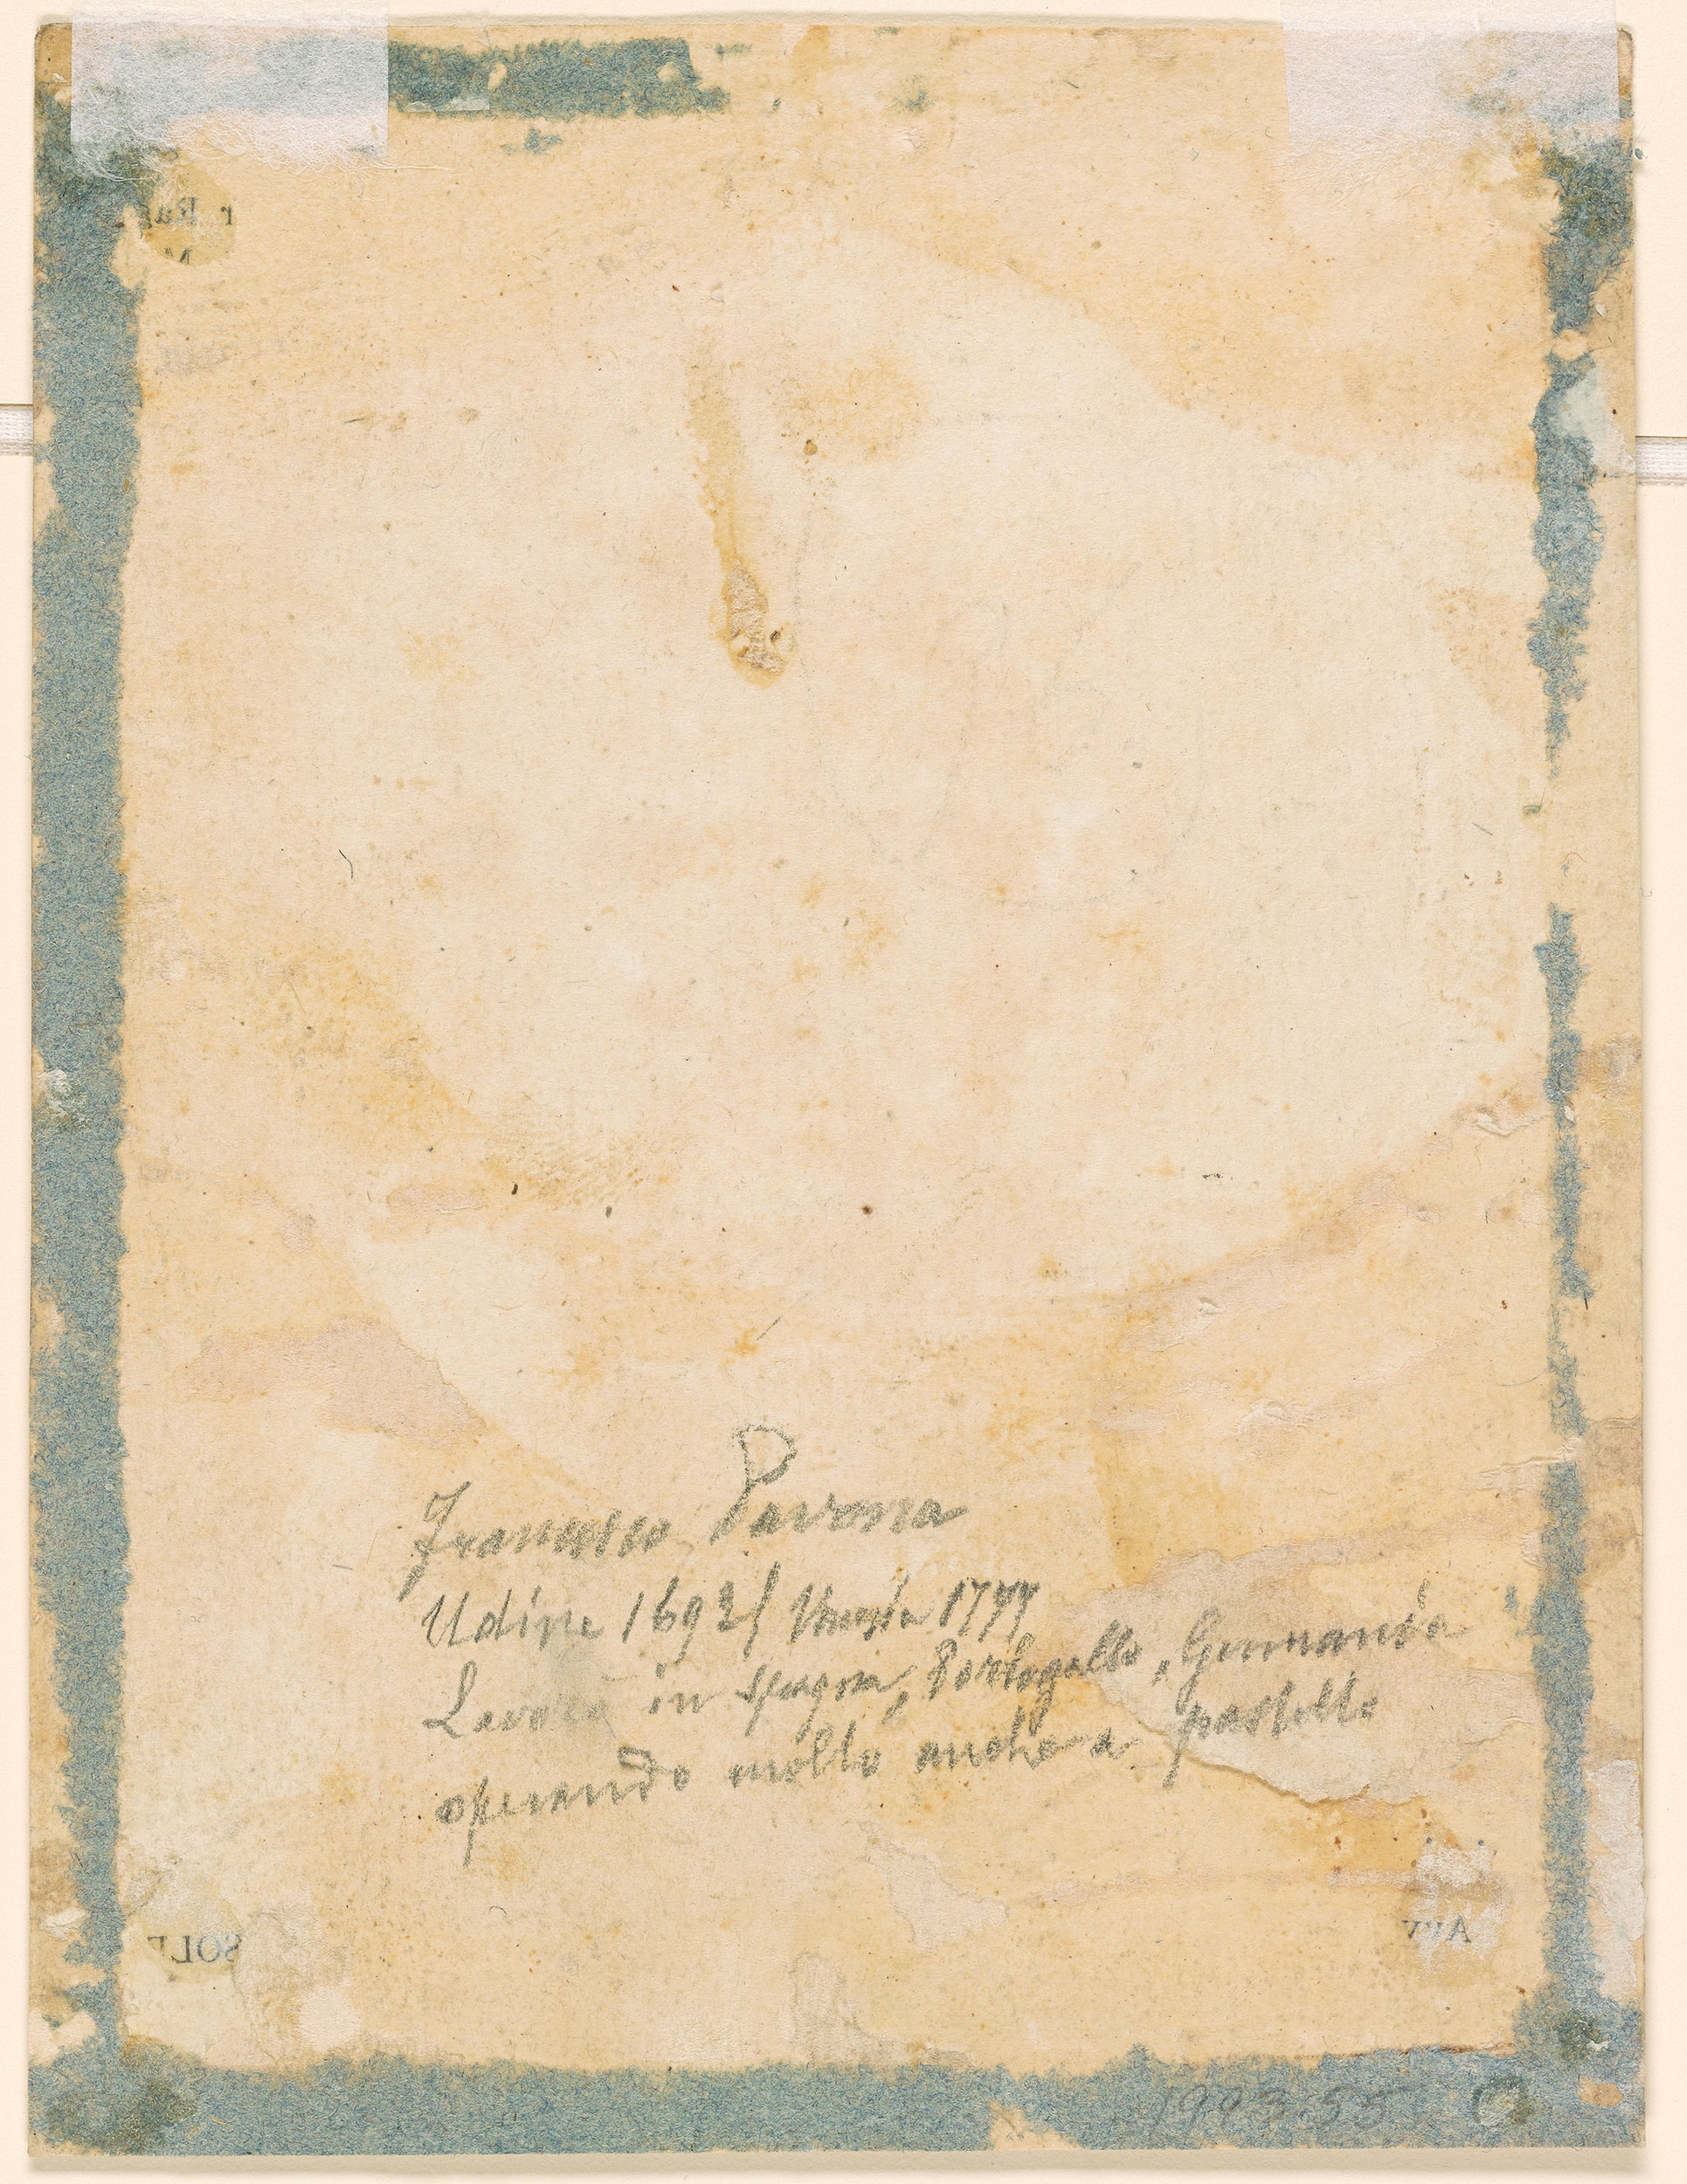 r. Rag
M
P
Francesco Pavona
Udine 1692/ Venezia 1777
Lavorò in Spagna, Portogallo, Germania
operando molto anche a pastello
SOLE
Avv
1993.55